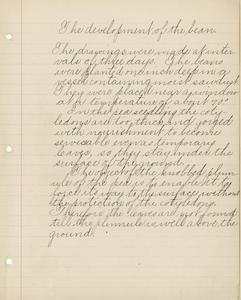 The development of the bean.
The drawings were made at inter
vals of three days. The beans
were planted one inch deep in a
vessel containing moist sawdust.
They were placed near a window
at a temperature of about 70°.
In the pea seedling the coty-
ledons are too thick and gorged
with nourishment to become
serviceable even as temporary
leaves, so they stay under the
surface of the ground.
The object of the knobbed plum
ule of the pea is to enable it to
force its way to the surface without
the protection of the cotyledons.
Therefore the leaves are not formed
till the plumule is well above the
ground.